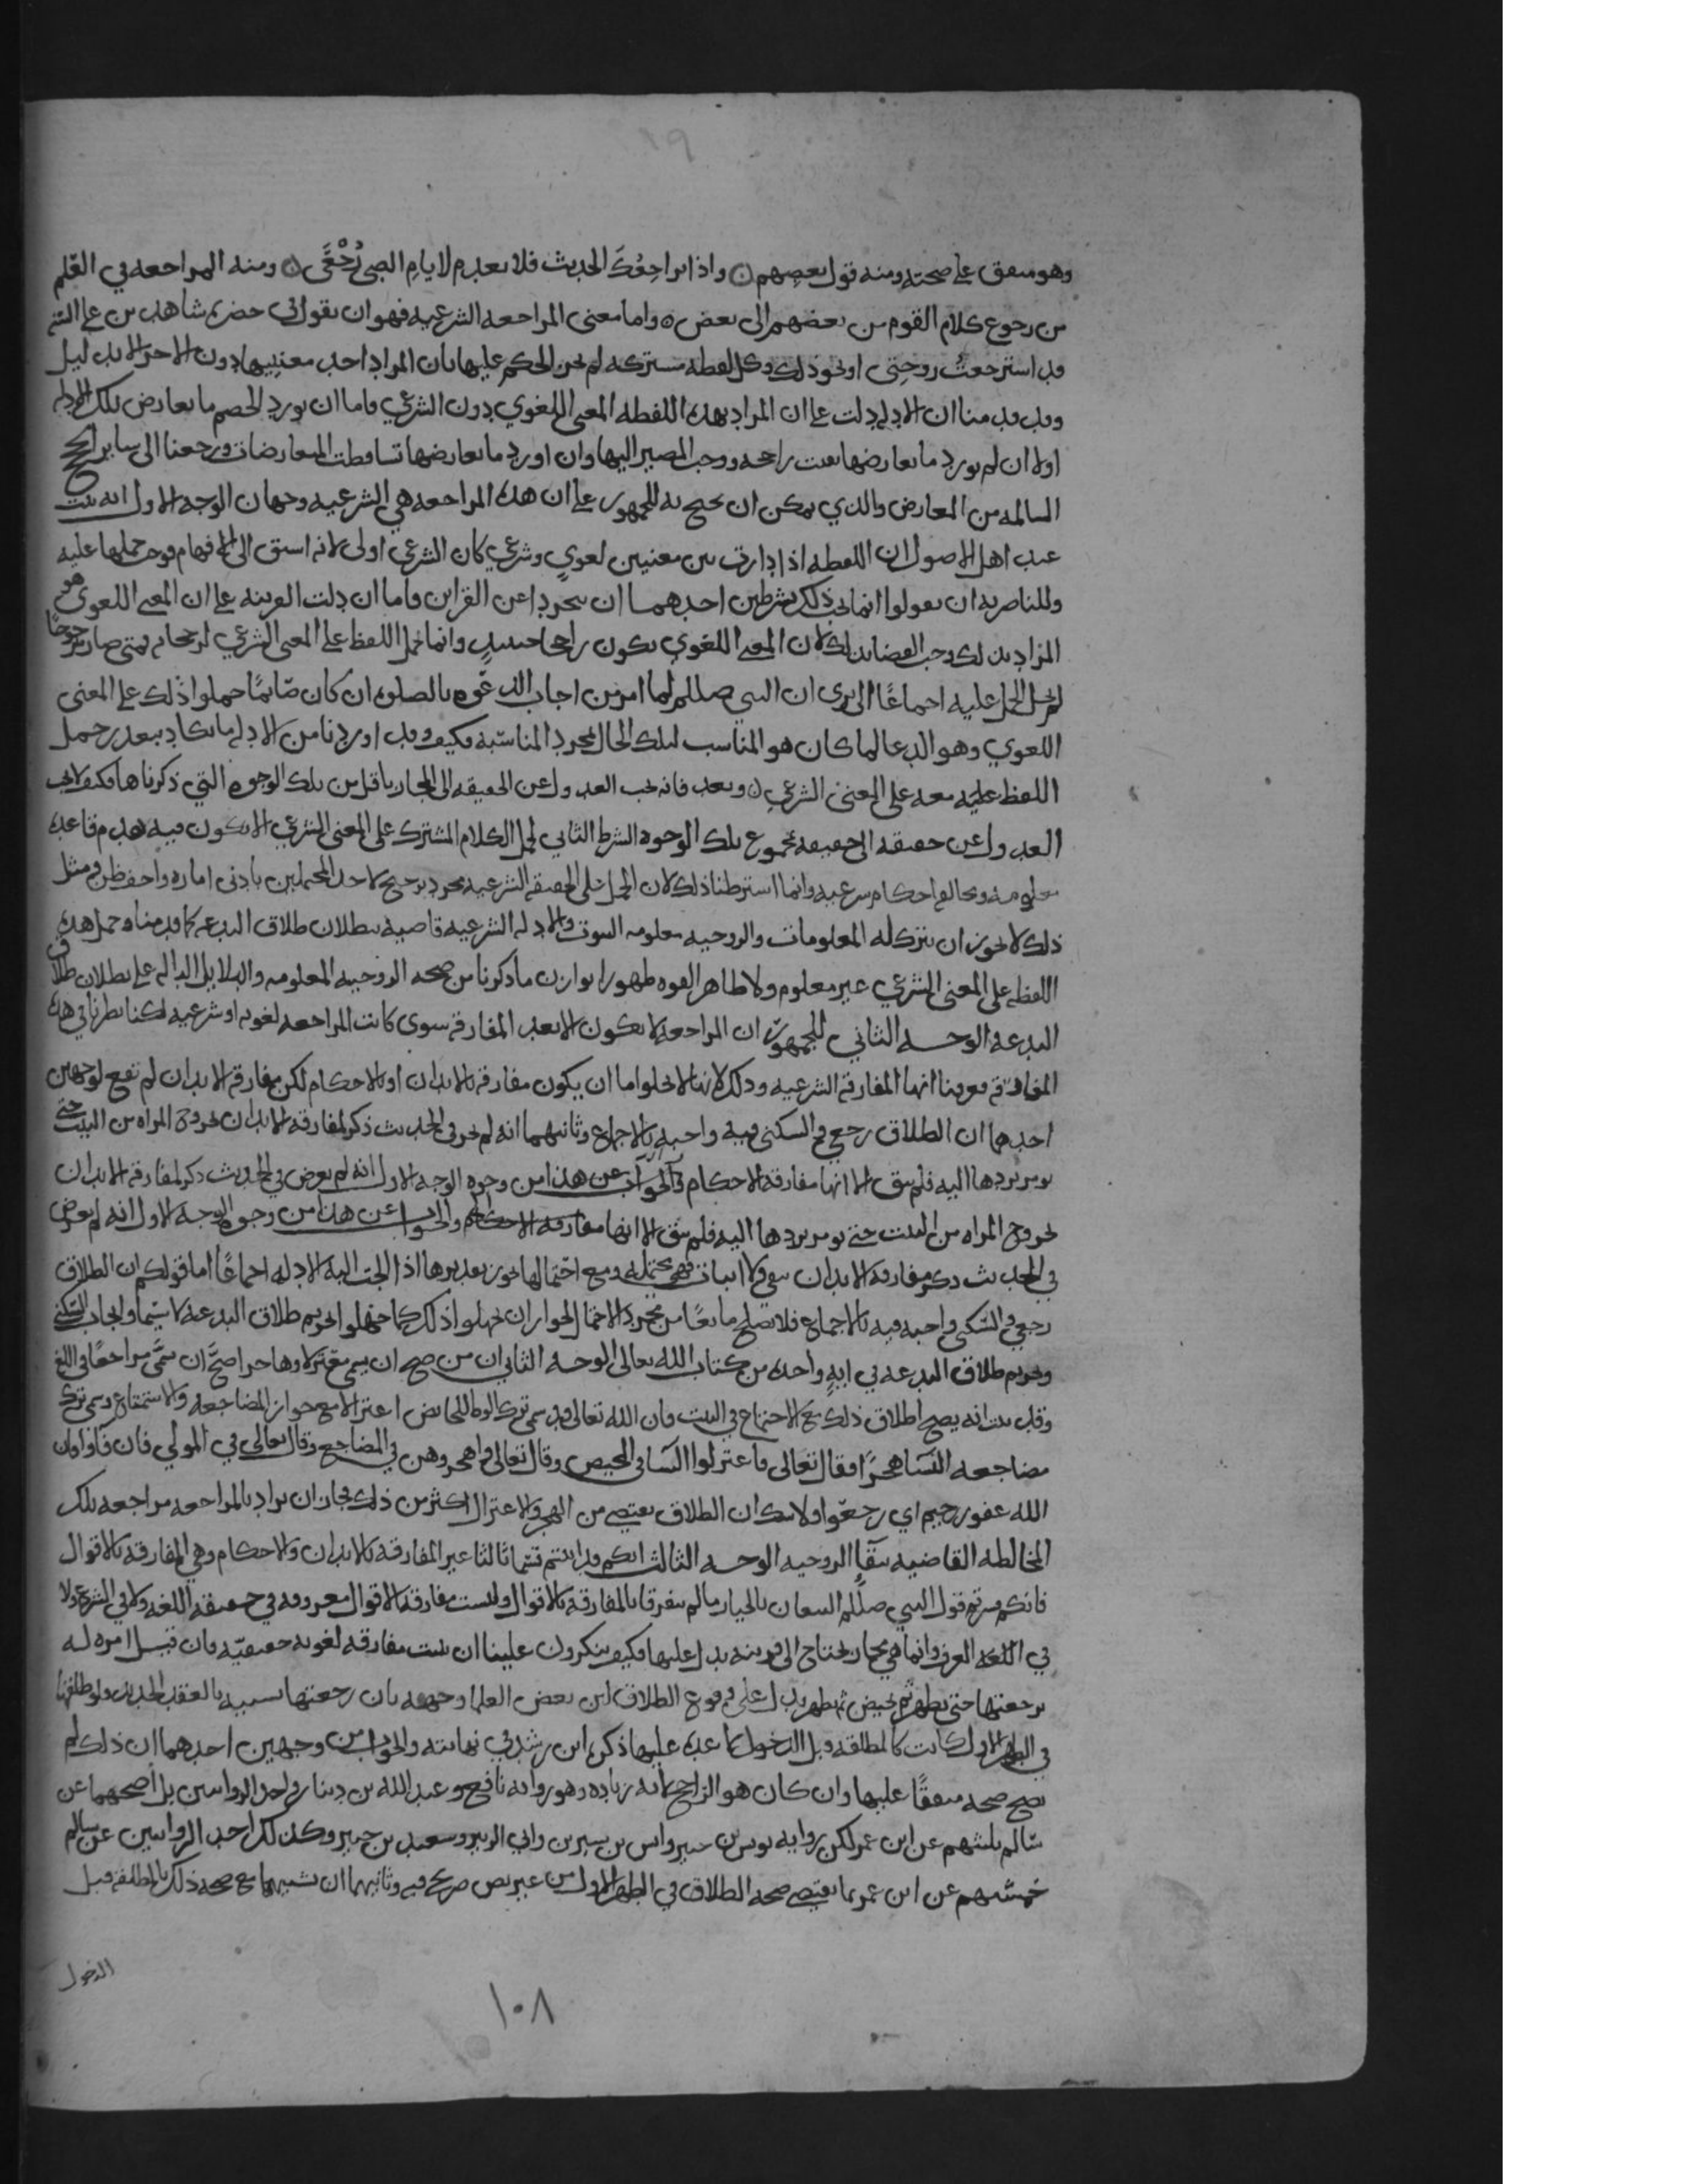 وهو متفق على صحته ومنه قول بعضهم واذا تراجعك الحديث فلا تعدم لايام الصبى رجعى ومنه المراجعه في العلم
من رجوع كلام القوم من بعضهم الى بعض واما معنى المراجعه الشرعيه فهو ان يقول في حضره شاهدين على
قد استرجعت زوجتي او نحو ذلك وكل لفظه مشتركه لم يجز الحكم عليها بان المراد احد معنييها دون الاخر الا بدليل
وقد قدمنا ان الادله دلت على ان المراد بهذه اللفظه المعنى اللغوي دون الشرعي فاما ان يورد الخصم ما يعارض تلك الادله
اولا ان لم يورد ما يعارضها بقت راجحه ووجب المصير اليها وان اورد ما يعارضها تساقطت المتعارضات ورجعنا الى ساير الحجج
السالمه من المعارض والذي يمكن ان يحتج به للجمهور على ان هذه المراجعه هي الشرعيه وجهان الوجه الاول انه ثبت
عند اهل الاصول ان اللفظه اذا دارت بين معنيين لغوي وشرعي كان الشرعي اولى لانه اسبق الى الافهام فوجب حملها عليه
وللناصريه ان يقولوا انما يجب ذلك بشرطين احدهما ان يتجرد عن القراين فاما ان دلت القرينه على ان المعنى اللغوي هو
المراد بذلك وجب القضا بذلك لان المعنى اللغوي يكون راجحا حينيذ وانما حمل اللفظ على المعنى الشرعي لرجحانه فمتى صار مرجوحا
لم يحل الحمل عليه اجماعا الا ترى ان النبي صللم لما امر من اجاب الدعوه بالصلوه ان كان صائما حملوا ذلك على المعنى
اللغوي وهو الدعا لما كان هو المناسب لتلك الحال بمجرد المناسبه فكيف وقد اوردنا من الادله ما يكاد يتعذر حمل
اللفظ عليه معه على المعنى الشرعي وبعد فانه يجب العدول عن الحقيقه الى المجاز باقل من تلك الوجوه التي ذكرناها فكيف لا يجب
العدول عن حقيقه الى حقيقه بمجموع تلك الوجوه الشرط الثاني لحمل الكلام المشترك على المعنى الشرعي الا يكون فيه هدم قاعده
معلومه ومخالفه احكام شرعيه وانما اشترطنا ذلك لان الحمل على الحقيقه الشرعيه مجرد ترجيح لاحد المحتملين بادنى اماره واخف ظن ومثل
ذلك لا يجوز ان تترك له المعلومات والزوجيه معلومه الثبوت والادله الشرعيه قاضيه ببطلان طلاق البدعه كما قدمناه وحمل هذه
اللفظه على المعنى الشرعي غير معلوم ولا ظاهر القوه ظهورا يوازن ما ذكرنا من صحه الزوجيه المعلومه والدلايل الداله على بطلان طلاق
البدعه الوجه الثاني للجمهور ان المراجعه لا تكون الا بعد المفارقه سوى كانت المراجعه لغويه او شرعيه لكنا نظرنا في هذه
المفارقه فعرفنا انها المفارقه الشرعيه وذلك لانها لا تخلوا اما ان يكون مفارقه بالابدان او بالاحكام لكن مفارقه الابدان لم تقع لوجهين
احدهما ان الطلاق رجعي والسكنى فيه واجبه بالاجماع وثانيهما انه لم يجر في الحديث ذكر لمفارقه الابدان بخروج المراه من البيت حتى
يومر بردها اليه فلم يبق الا انها مفارقه الاحكام والجواب عن هذا من وجوه الوجه الاول انه لم يعرض في الحديث ذكر لمفارقه الابدان
بخروج المراه من البيت حتى يومر بردها اليه فلم يبق الا انها مفارقه الاحكام والجواب عن هذا من وجوه الوجه الاول انه لم يعرض
في الحديث ذكر مفارقه الابدان بنفي ولا اثبات فهي محتمله ومع احتمالها يجوز تقديرها اذا الجت اليه الادله اجماعا اما قولكم ان الطلاق
رجعي والسكنى واجبه فيه بالاجماع فلا يصلح مانعا من مجرد الاحتمال لجواز ان يجهلوا ذلك كما جهلوا تحريم طلاق البدعه لا سيما وايجاب السكنى
وتحريم طلاق البدعه في ايه واحده من كتاب الله تعالى الوجه الثاني ان من صح ان يسمى معتزلا وهاجرا صح ان يسمى مراجعا في اللغه
وقد ثبت انه يصح اطلاق ذلك مع الاجتماع في البيت فان الله تعالى قد سمى ترك الوطا للحايض اعتزالا مع جواز المضاجعه والاستمتاع وسمى ترك
مضاجعه النسا هجرا فقال تعالى فاعتزلوا النسا في المحيض وقال تعالى واهجروهن في المضاجع وقال تعالى في المولي فان فاوا فان
الله غفور رحيم اي رجعوا ولا شك ان الطلاق يقتضي من الهجر والاعتزال اكثر من ذلك فجاز ان يراد بالمراجعه مراجعه تلك
المخالطه القاضيه ببقا الزوجيه الوجه الثالث انكم قد اثبتم قسما ثالثا غير المفارقه بالابدان والاحكام وهي المفارقه بالاقوال
فانكم فسرتم قول النبي صللم البيعان بالخيار ما لم يتفرقا بالمفارقه بالاقوال وليست مفارقه الاقوال معروفه في حقيقه اللغه ولا في الشرع ولا
في اللغه العرف وانما هي مجاز يحتاج الى قرينه يدل عليها فكيف ينكرون علينا ان نثبت مفارقه لغويه حقيقيه فان قيل امره له
برجعتها حتى تطهر ثم تحيض ثم تطهر يدل على وقوع الطلاق لان بعض العلما وجهه بان رجعتها شبيه بالعقد الجديد ولو طلقها
في الطهر الاول كانت كالمطلقه قبل الدخول لا عده عليها ذكره ابن رشد في نهايته والجواب من وجهين احدهما ان ذلك لم
يصح صحه متفقا عليها وان كان هو الراجح لانه زياده وهو روايه نافع وعبد الله بن دينار واحد الروايتين بل اصحهما عن
سالم ثلثتهم عن ابن عمر لكن روايه يونس بن جبير وانس بن سيرين وابي الزبير وسعيد بن جبير وكذلك احد الروايتين عن سالم
خمستهم عن ابن عمر بما يقتضي صحه الطلاق في الطهر الاول من غير نص صريح فيه وثانيهما ان تشبيهها مع صحه ذلك بالمطلقه قبل
الدخول
١٠٨